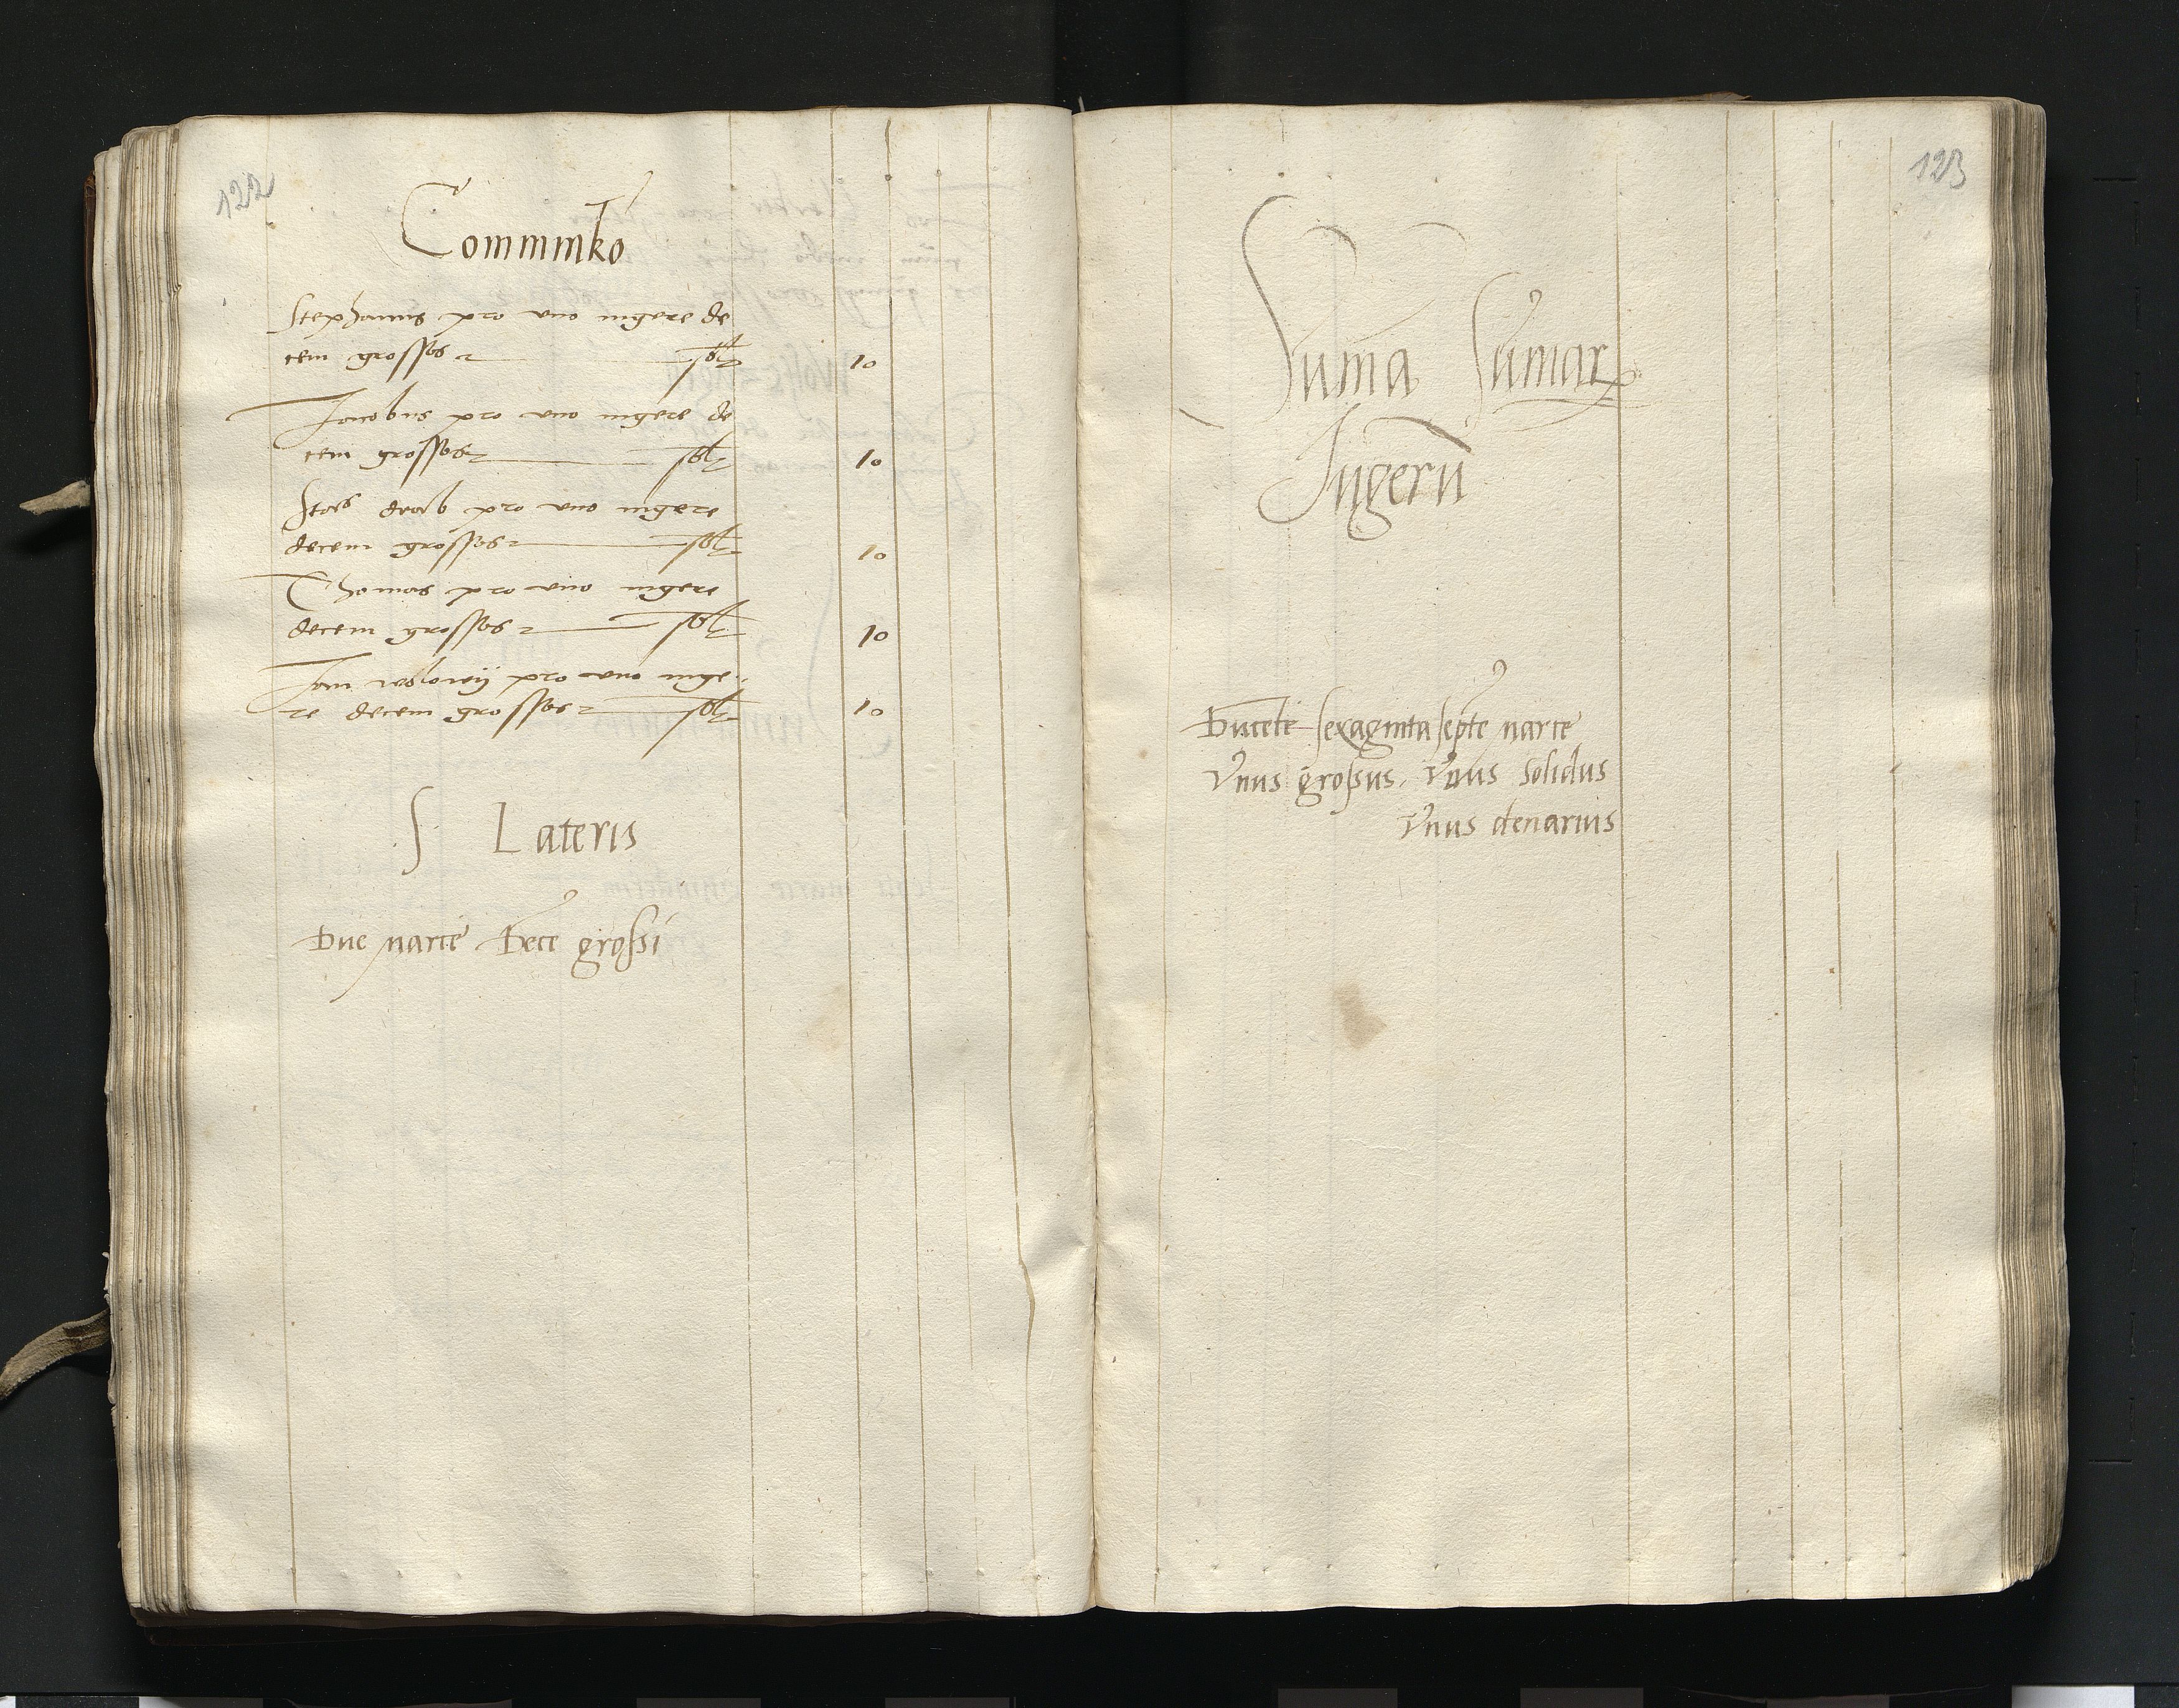 122
Comminko
Stephanus pro uno iugere de
cem grossos sol 10
Jacobus pro uno iugere de
cem grossos sol 10
Stas drab pro uno iugere
decem grossos sol 10
Thomas pro uno iugere
decem grossos sol 10
Jan wolowy pro uno iuge
re decem grossos sol 10
S Lateris
Due marce Dece grossi
123
Suma Sumar
Jugeru
Ducete sexaginta septe marce
Vnus grossus. Vnus solidus
Vnus denarius